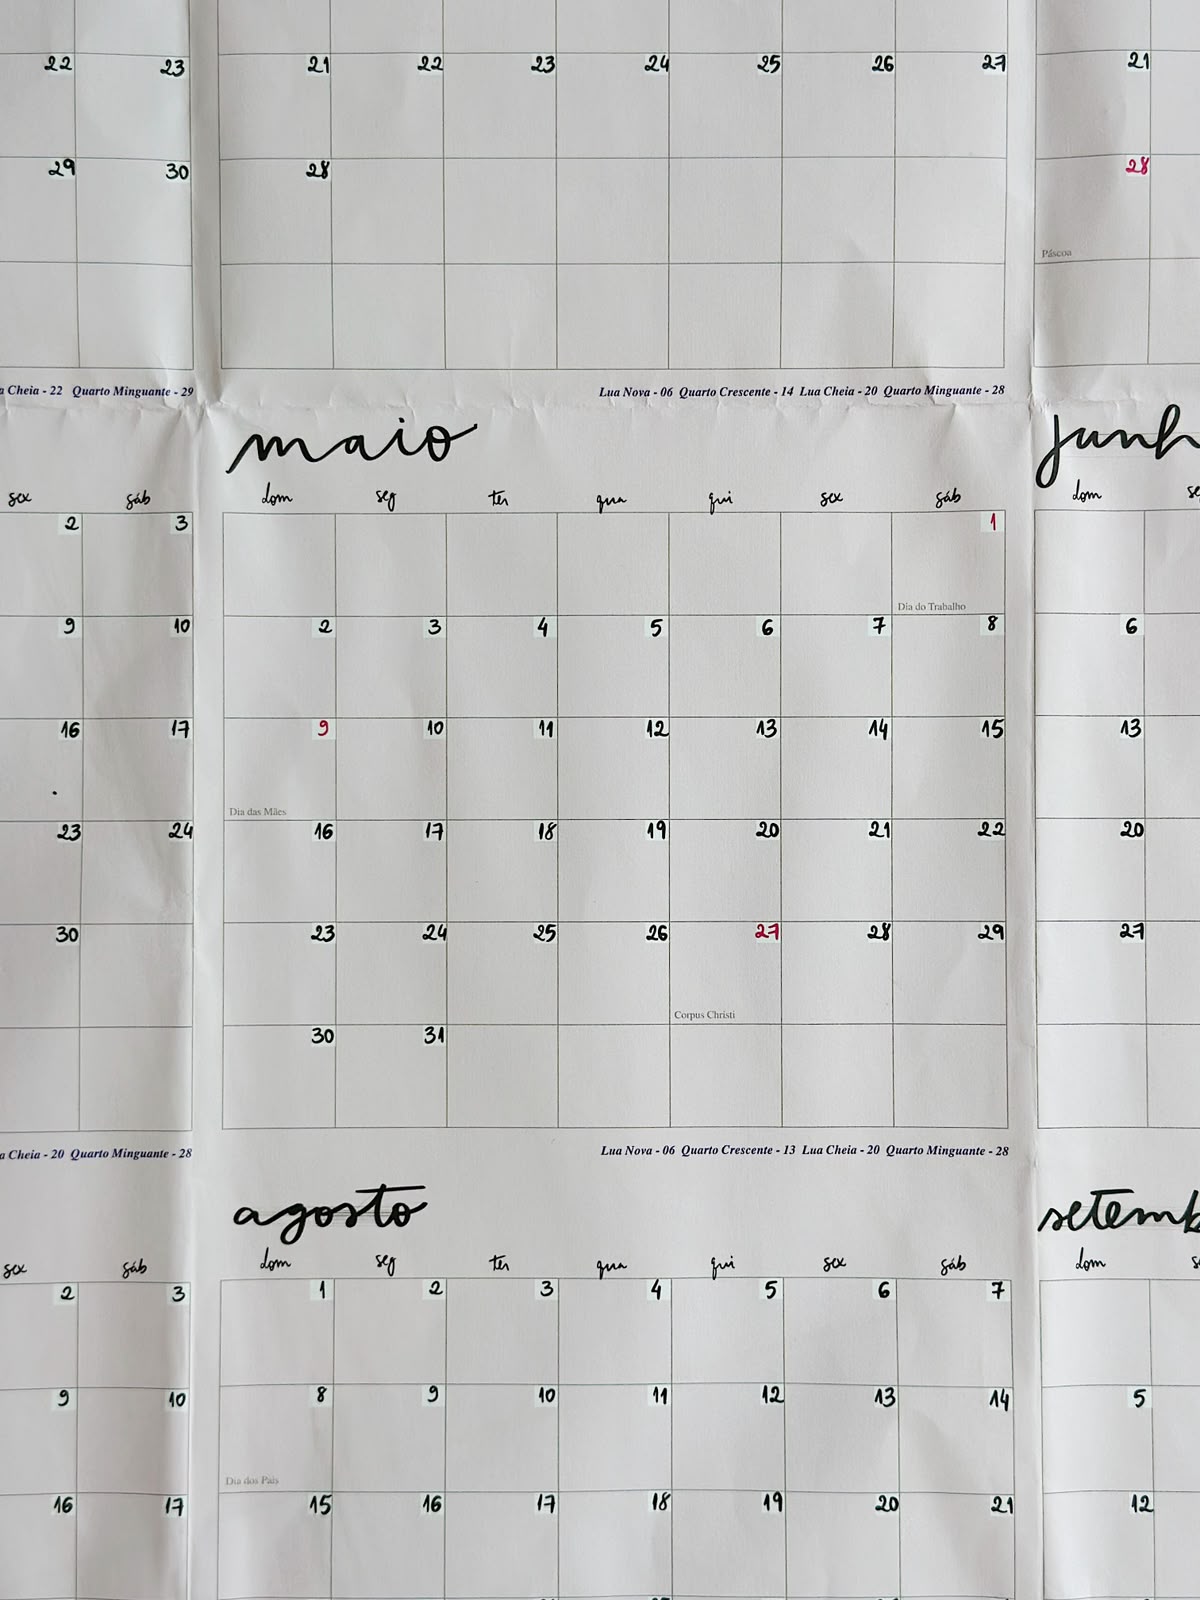 22 23 21 22 23 24 25 26 27 21
29 30 28 28
Páscoa
a Cheia - 22 Quarto Minguante - 29 Lua Nova - 06 Quarto Crescente - 14 Lua Cheia - 20 Quarto Minguante - 28
maio junh
sex sáb dom seg ter qua qui sex sáb dom se
2 3 1
Dia do Trabalho
9 10 2 3 4 5 6 7 8 6
16 17 9 10 11 12 13 14 15 13
Dia das Mães
23 24 16 17 18 19 20 21 22 20
30 23 24 25 26 27 28 29 27
Corpus Christi
30 31
a Cheia - 20 Quarto Minguante - 28 Lua Nova - 06 Quarto Crescente - 13 Lua Cheia - 20 Quarto Minguante - 28
agosto setemb
sex sáb dom seg ter qua qui sex sáb dom s
2 3 1 2 3 4 5 6 7
9 10 8 9 10 11 12 13 14 5
Dia dos Pais
16 17 15 16 17 18 19 20 21 12